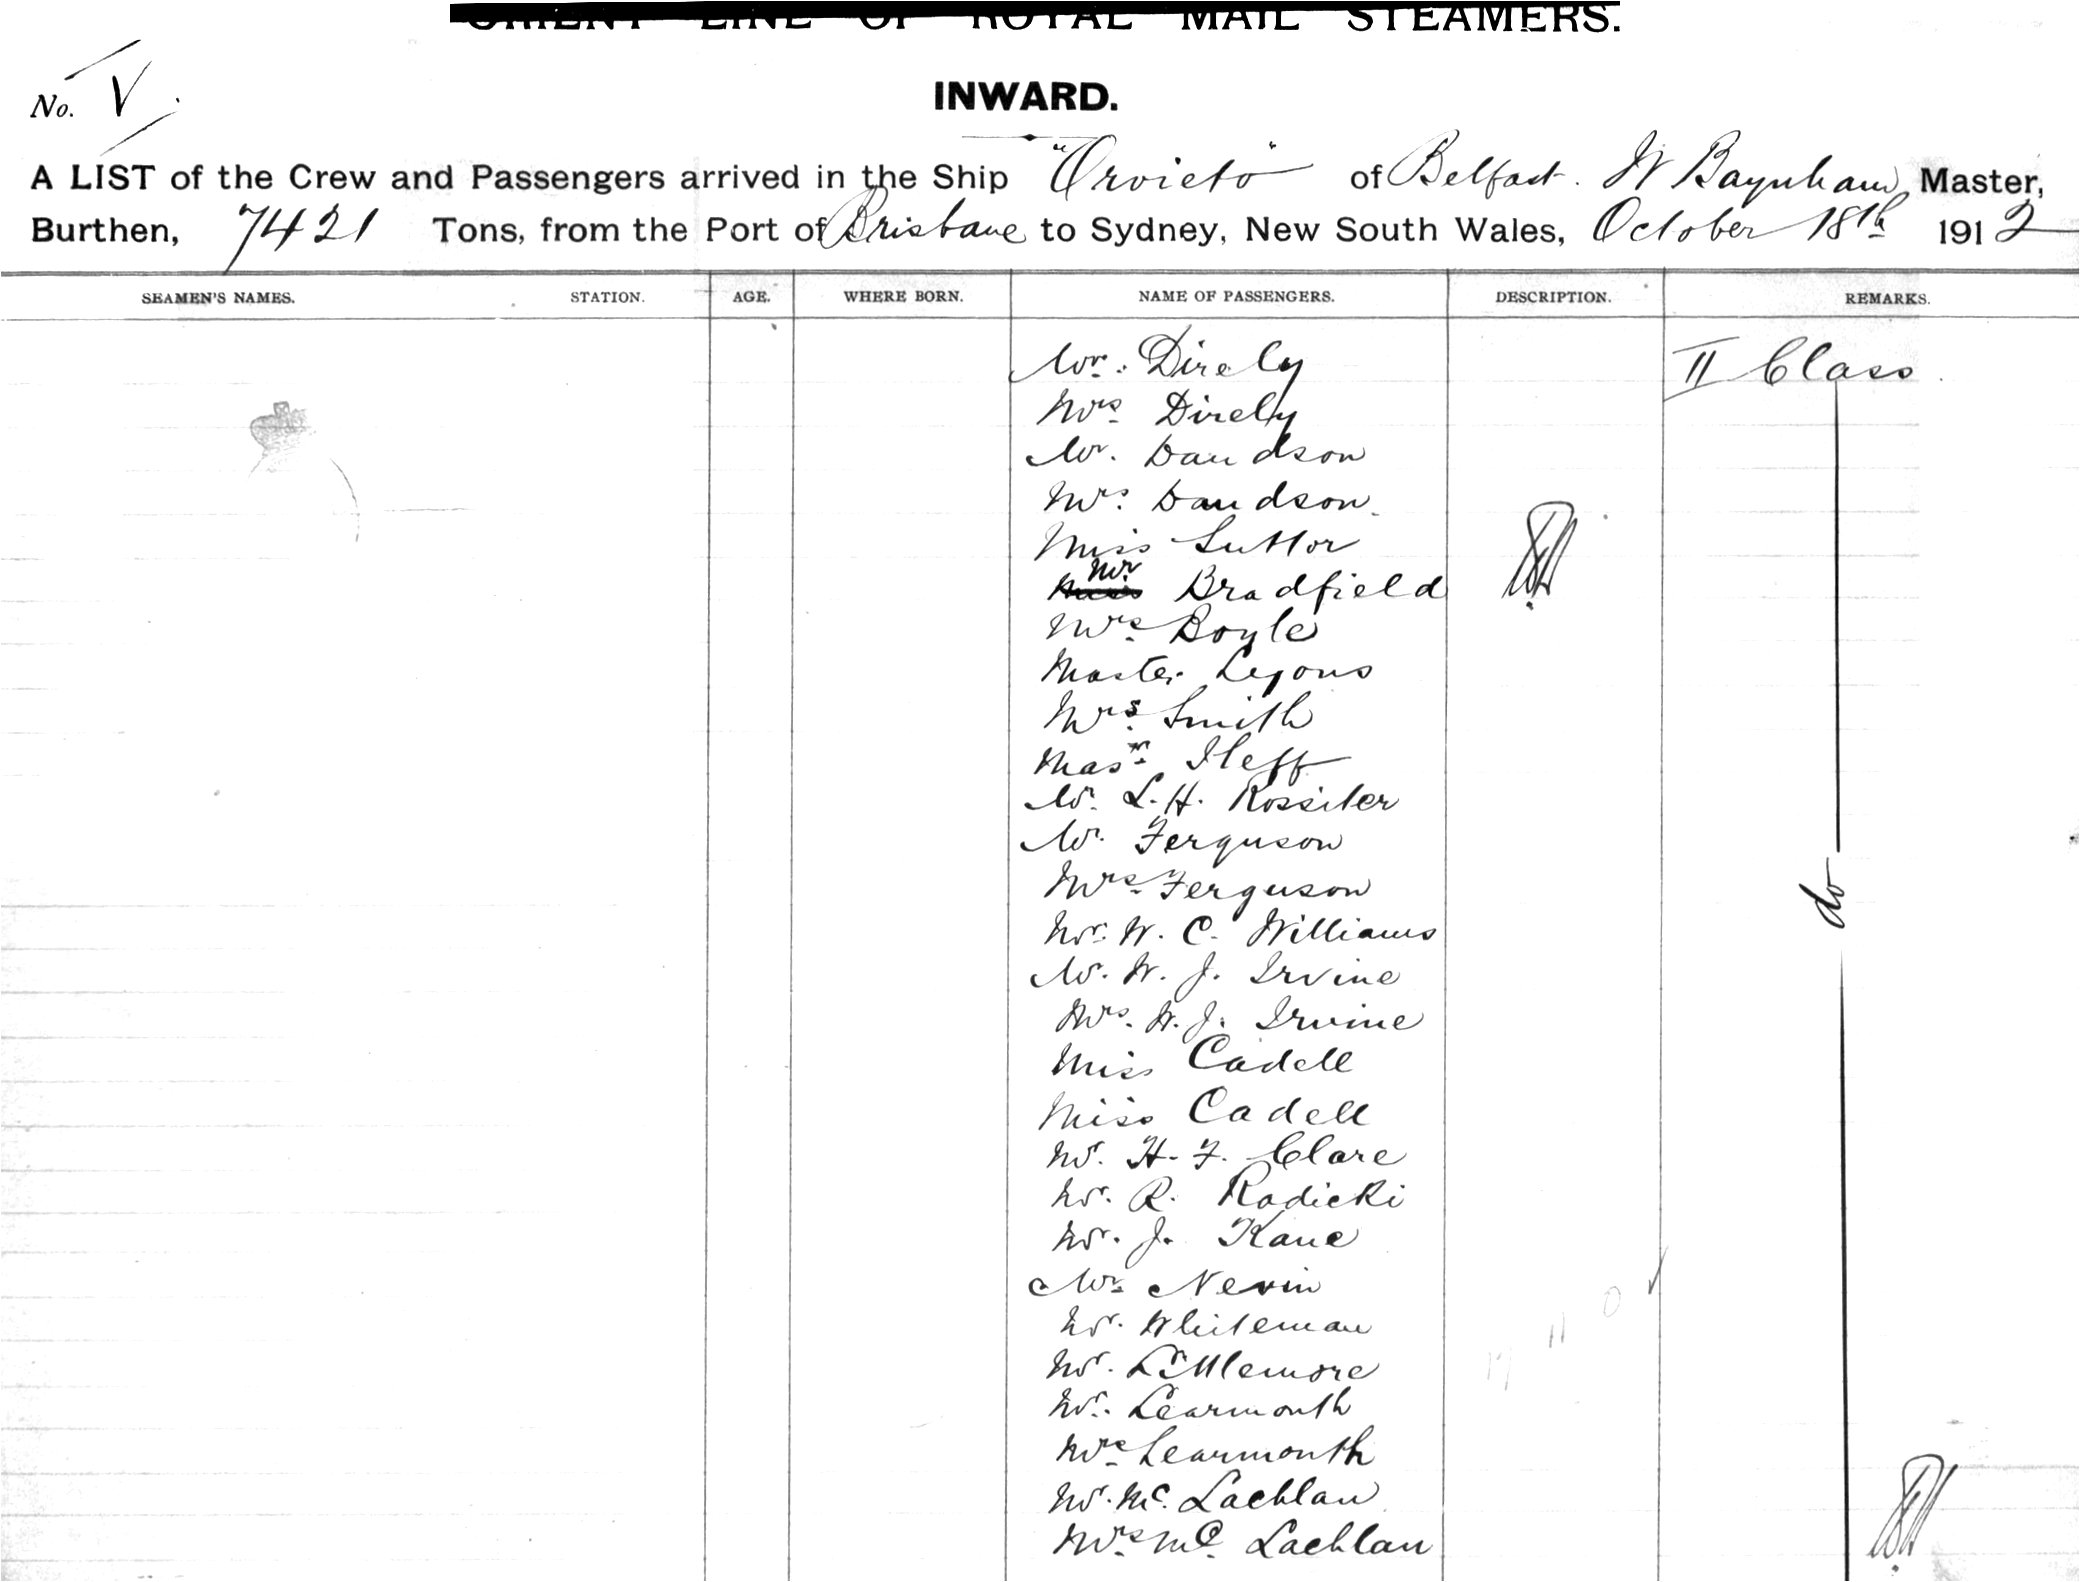 ORIENT LINE OF ROYAL MAIL STEAMERS.
No. V
INWARD.
A LIST of the Crew and Passengers arrived in the Ship "Orvieto" of Belfast. W Baynham, Master,
Burthen, 7421 Tons, from the Port of Brisbane to Sydney, New South Wales, October 18th 1912
SEAMEN'S NAMES. STATION. AGE. WHERE BORN. NAME OF PASSENGERS. DESCRIPTION. REMARKS.
Mr. Direly II Class
Mrs Direly
Mr. Davidson
Mrs. Davidson.
Miss Suttor
Mr. Bradfield
Mrs Boyle
Master Lyons
Mrs. Smith
Masr
Mr. L. H. Rossiter
Mr. Ferguson
Mrs Ferguson
do
Mr. W. C. Williams
Mr. W. J. Irvine
Mrs. W. J. Irvine
Miss Cadell
Miss Cadell
Mr. H. F. Clare
Mr. R. Radicki
Mr. J. Kane
Mr. Nevin
Mr. Whiteman
Mr. Littlemore
Mr. Learmonth
Mrs Learmonth
Mr. Mc. Lachlan
Mrs. Mc. Lachlan